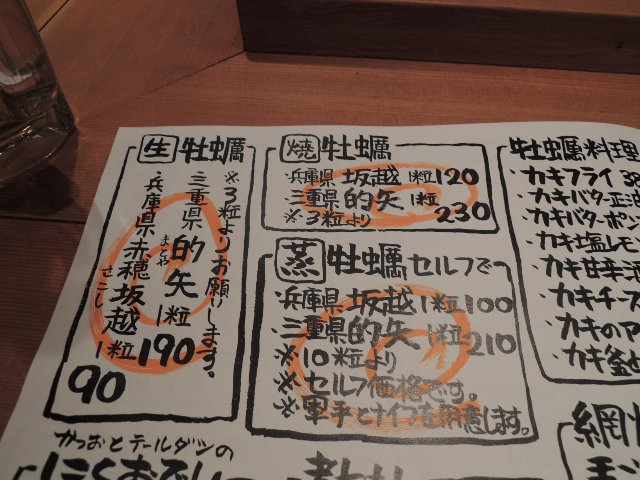 生 牡蠣
※3粒よりお願いします。
三重県 的矢 1粒 190
まとや
兵庫県赤穂坂越 1粒 90
さこし
焼 牡蠣
兵庫県 坂越 1粒 120
三重県 的矢 1粒 230
※3粒より
蒸 牡蠣 セルフで
・兵庫県 坂越 1粒 100
・三重県的矢 1粒 210
※10粒より
※セルフ価格です。
※軍手とナイフを用意します。
牡蠣料理
・カキフライ
・カキバター正油
・カキバターポン
・カキ塩レモ
・カキ甘辛
・カキチーズ
・カキのア
・カキ釜
かつおとテールダシの
網